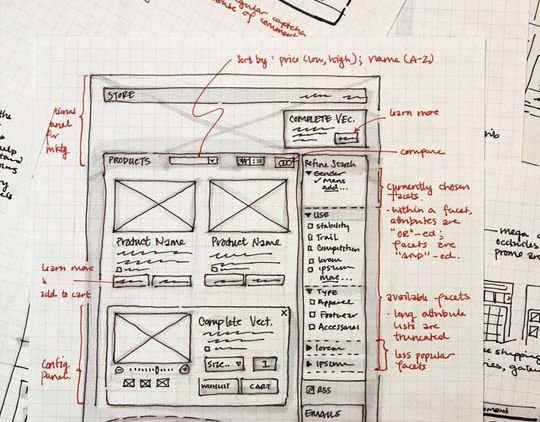 sort by: price (low, high); name (A-Z)
STORE
COMPLETE VEC.
learn more
for
mktg
PRODUCTS
compare
Refine Search
Gender
Mens
add...
currently chosen
facets.
• within a facet,
attributes are
"OR"-ed;
facets are
"AND"-ed.
USE
Stability
Trail
Competition
lorem
ipsum
more...
Product Name
Product Name
learn more
&
add to cart
TYPE
Apparel
Footwear
Accessories
available facets
• long attribute
lists are
truncated
Complete Vect.
X
SIZE..
1
WISHLIST
CART
Config
Panel
lorem
ipsum
less popular
facets
RSS
EMAILS
mega
occludes
promo are
shipping